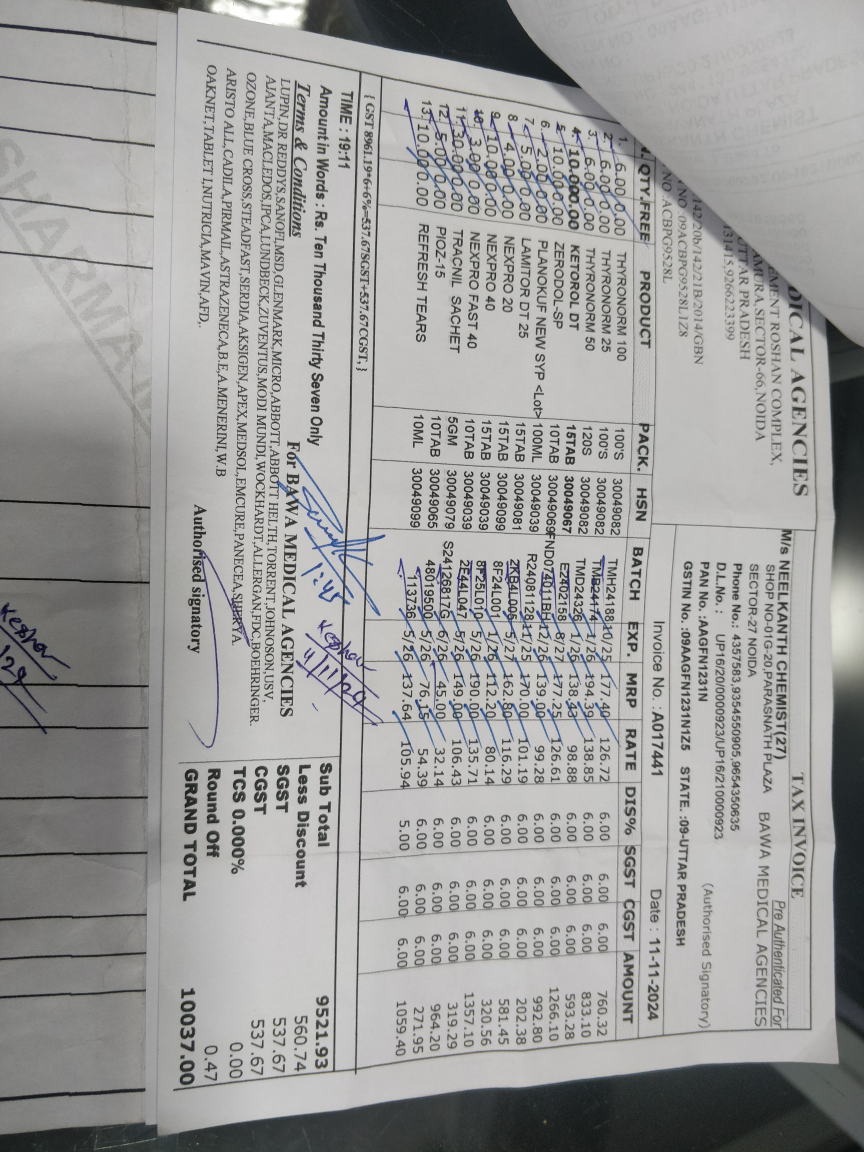 DICAL AGENCIES
EMENT ROSHAN COMPLEX,
AMURA,SECTOR-66,NOIDA
UTTAR PRADESH
131415,9266223399
142/20b/142/21B/2014/GBN
NO :09ACBPG9528L1Z8
NO :ACBPG9528L
TAX INVOICE
M/s NEELKANTH CHEMIST(27)
SHOP NO-01G-20,PARASNATH PLAZA
SECTOR-27 NOIDA
Phone No.: 4357583,9354550905,9654350635
D.L.No. : UP16/20/0000923/UP16/210000923
PAN No. :AAGFN1231N
GSTIN No. :09AAGFN1231N1Z5 STATE. :09-UTTAR PRADESH
Pre Authenticated For
BAWA MEDICAL AGENCIES
(Authorised Signatory)
Invoice No. : A017441 Date : 11-11-2024
N. QTY. FREE PRODUCT PACK. HSN BATCH EXP. MRP RATE DIS% SGST CGST AMOUNT
1. 6.00 0.00 THYRONORM 100 100'S 30049082 TMH24188 10/25 177.40 126.72 6.00 6.00 6.00 760.32
2. 6.00 0.00 THYRONORM 25 100'S 30049082 TMB24174 1/26 194.39 138.85 6.00 6.00 6.00 833.10
3. 6.00 0.00 THYRONORM 50 120S 30049082 TMD24326 1/26 138.43 98.88 6.00 6.00 6.00 593.28
4. 10.00 0.00 KETOROL DT 15TAB 30049067 E2402158 8/27 177.25 126.61 6.00 6.00 6.00 1266.10
5. 10.00 0.00 ZERODOL-SP 10TAB 30049069 FND074011BH 12/26 139.00 99.28 6.00 6.00 6.00 992.80
6. 2.00 0.00 PLANOKUF NEW SYP <Lot> 100ML 30049039 R24081128 11/25 170.00 101.19 6.00 6.00 6.00 202.38
7. 5.00 0.00 LAMITOR DT 25 15TAB 30049081 2KB4L006 5/27 162.80 116.29 6.00 6.00 6.00 581.45
8. 4.00 0.00 NEXPRO 20 15TAB 30049099 8F24L001 1/26 112.20 80.14 6.00 6.00 6.00 320.56
9. 10.00 0.00 NEXPRO 40 15TAB 30049039 8F25L010 5/26 190.00 135.71 6.00 6.00 6.00 1357.10
10. 3.00 0.00 NEXPRO FAST 40 10TAB 30049039 7E44L047 5/26 149.00 106.43 6.00 6.00 6.00 319.29
11. 30.00 0.00 TRACNIL SACHET 5GM 30049079 S24126817G 6/26 45.00 32.14 6.00 6.00 6.00 964.20
12. 5.00 0.00 PIOZ-15 10TAB 30049065 48019500 5/26 76.15 54.39 6.00 6.00 6.00 271.95
13. 10.00 0.00 REFRESH TEARS 10ML 30049099 113736 5/26 137.64 105.94 5.00 6.00 6.00 1059.40
{ GST 8961.19*6+6%=537.67SGST+537.67CGST, }
TIME : 19:11
Amount in Words : Rs. Ten Thousand Thirty Seven Only
Terms & Conditions
LUPIN,DR REDDYS,SANOFI,MSD,GLENMARK,MICRO,ABBOTT,ABBOTT HELTH,TORRENT,JOHNSON,USV,
AJANTA,MACLEDOS,IPCA,LUNDBECK,ZUVENTUS,MODI MUNDI,WOCKHARDT,ALLERGAN,FDC,BOEHRINGER,
OZONE,BLUE CROSS,STEADFAST,SERDIA,AKSIGEN,APEX,MEDSOL,EMCURE,PANECEA,SUERYA.
ARISTO ALL,CADILA,PIRMAIL,ASTRAZENECA,B.E,A.MENERINI,W.B
OAKNET,TABLET 1,NUTRICIA,MAVIN,AFD,.
For BAWA MEDICAL AGENCIES
1:45
Keshav
11/11/24
Authorised signatory
Sub Total 9521.93
Less Discount 560.74
SGST 537.67
CGST 537.67
TCS 0.000% 0.00
Round Off 0.47
GRAND TOTAL 10037.00
SHARMA
Keshav